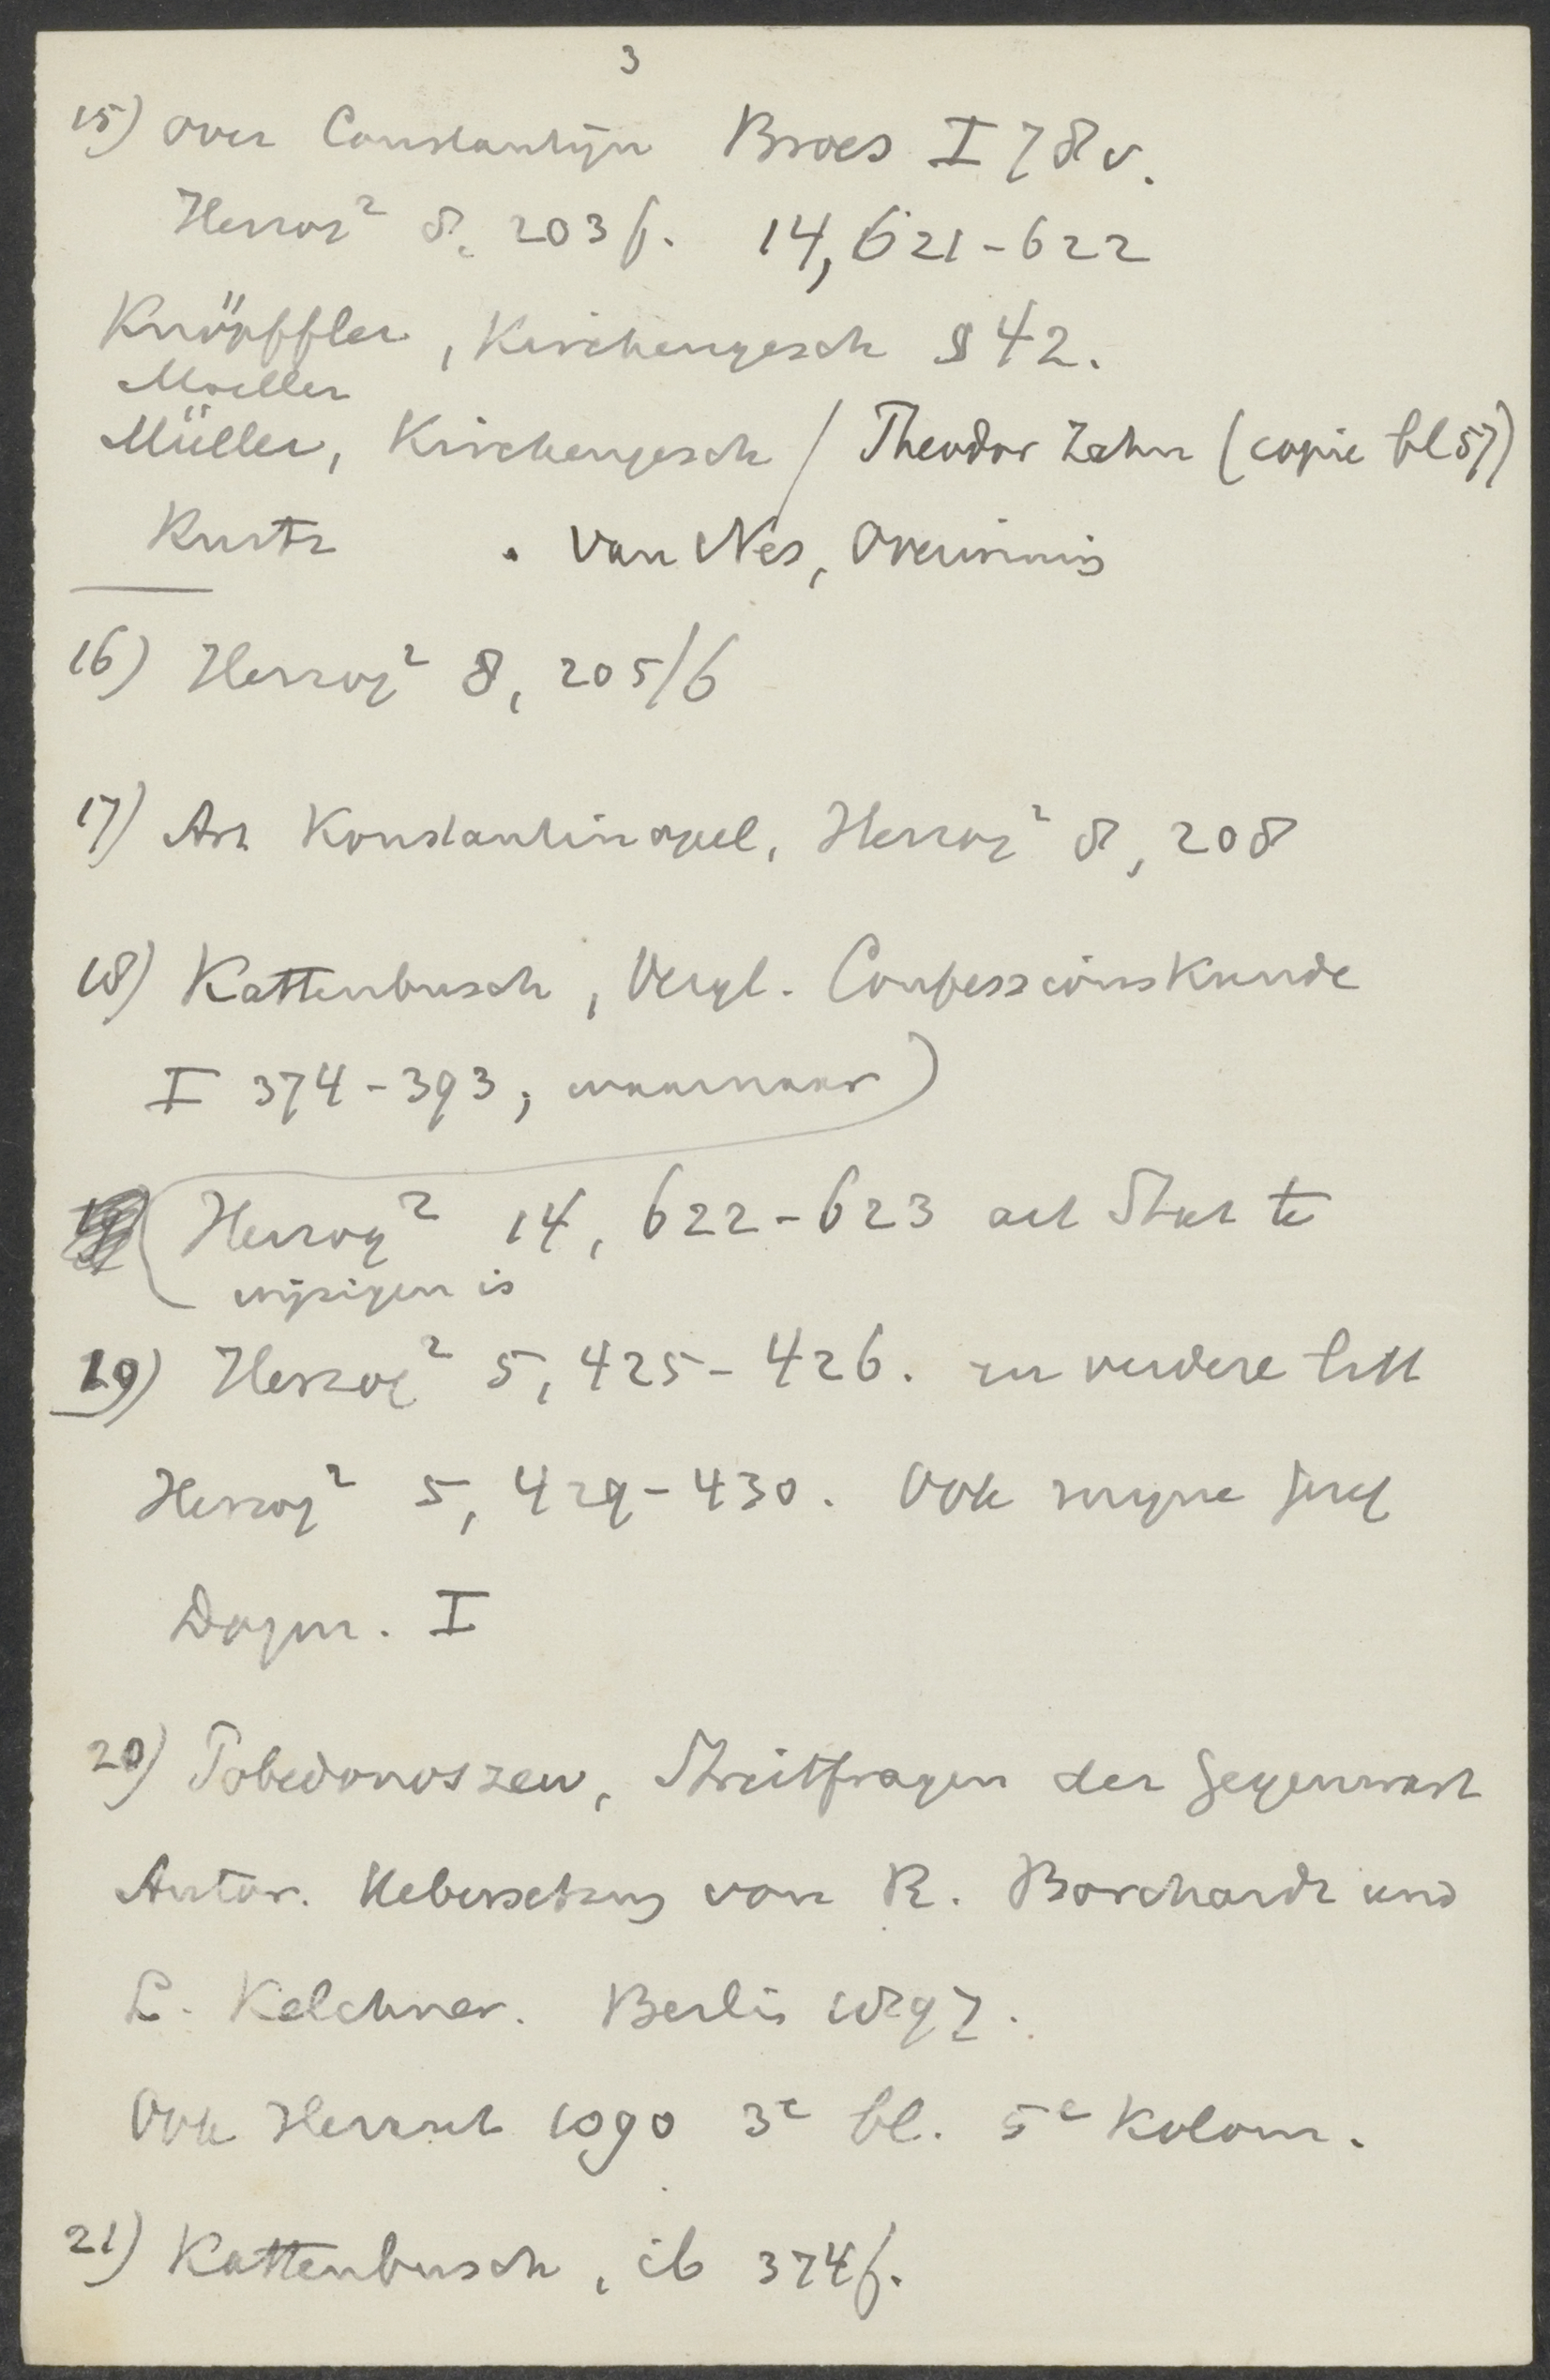 3
15) over Constantijn Broes I 78 v.
Herzog² 8, 203 f. 14, 621-622
Knöpffler, Kirchengesch § 42.
Moeller
Müller, Kirchengesch / Theodor Zahn (copie bl 57)
Kurtz . Van Nes,
16) Herzog² 8, 205/6
17) Art Konstantinopel, Herzog² 8, 208
18) Kattenbusch, Vergl. Confessionskunde
I 374-393; waarnaar)
(Herzog² 14, 622-623 art Staat te
wijzigen is
19) Herzog² 5, 425-426. en verdere litt
Herzog² 5, 429-430. Ook mijne Geref
Dogm. I
20) Pobedonoszew, Streitfragen der Gegenwart
Autor. Uebersetzung von R. Borchardt und
L. Kelchner. Berlin 1897.
Ook Herraut 1090 3e bl. 5e Kolom.
21) Kattenbusch, ib 374 f.